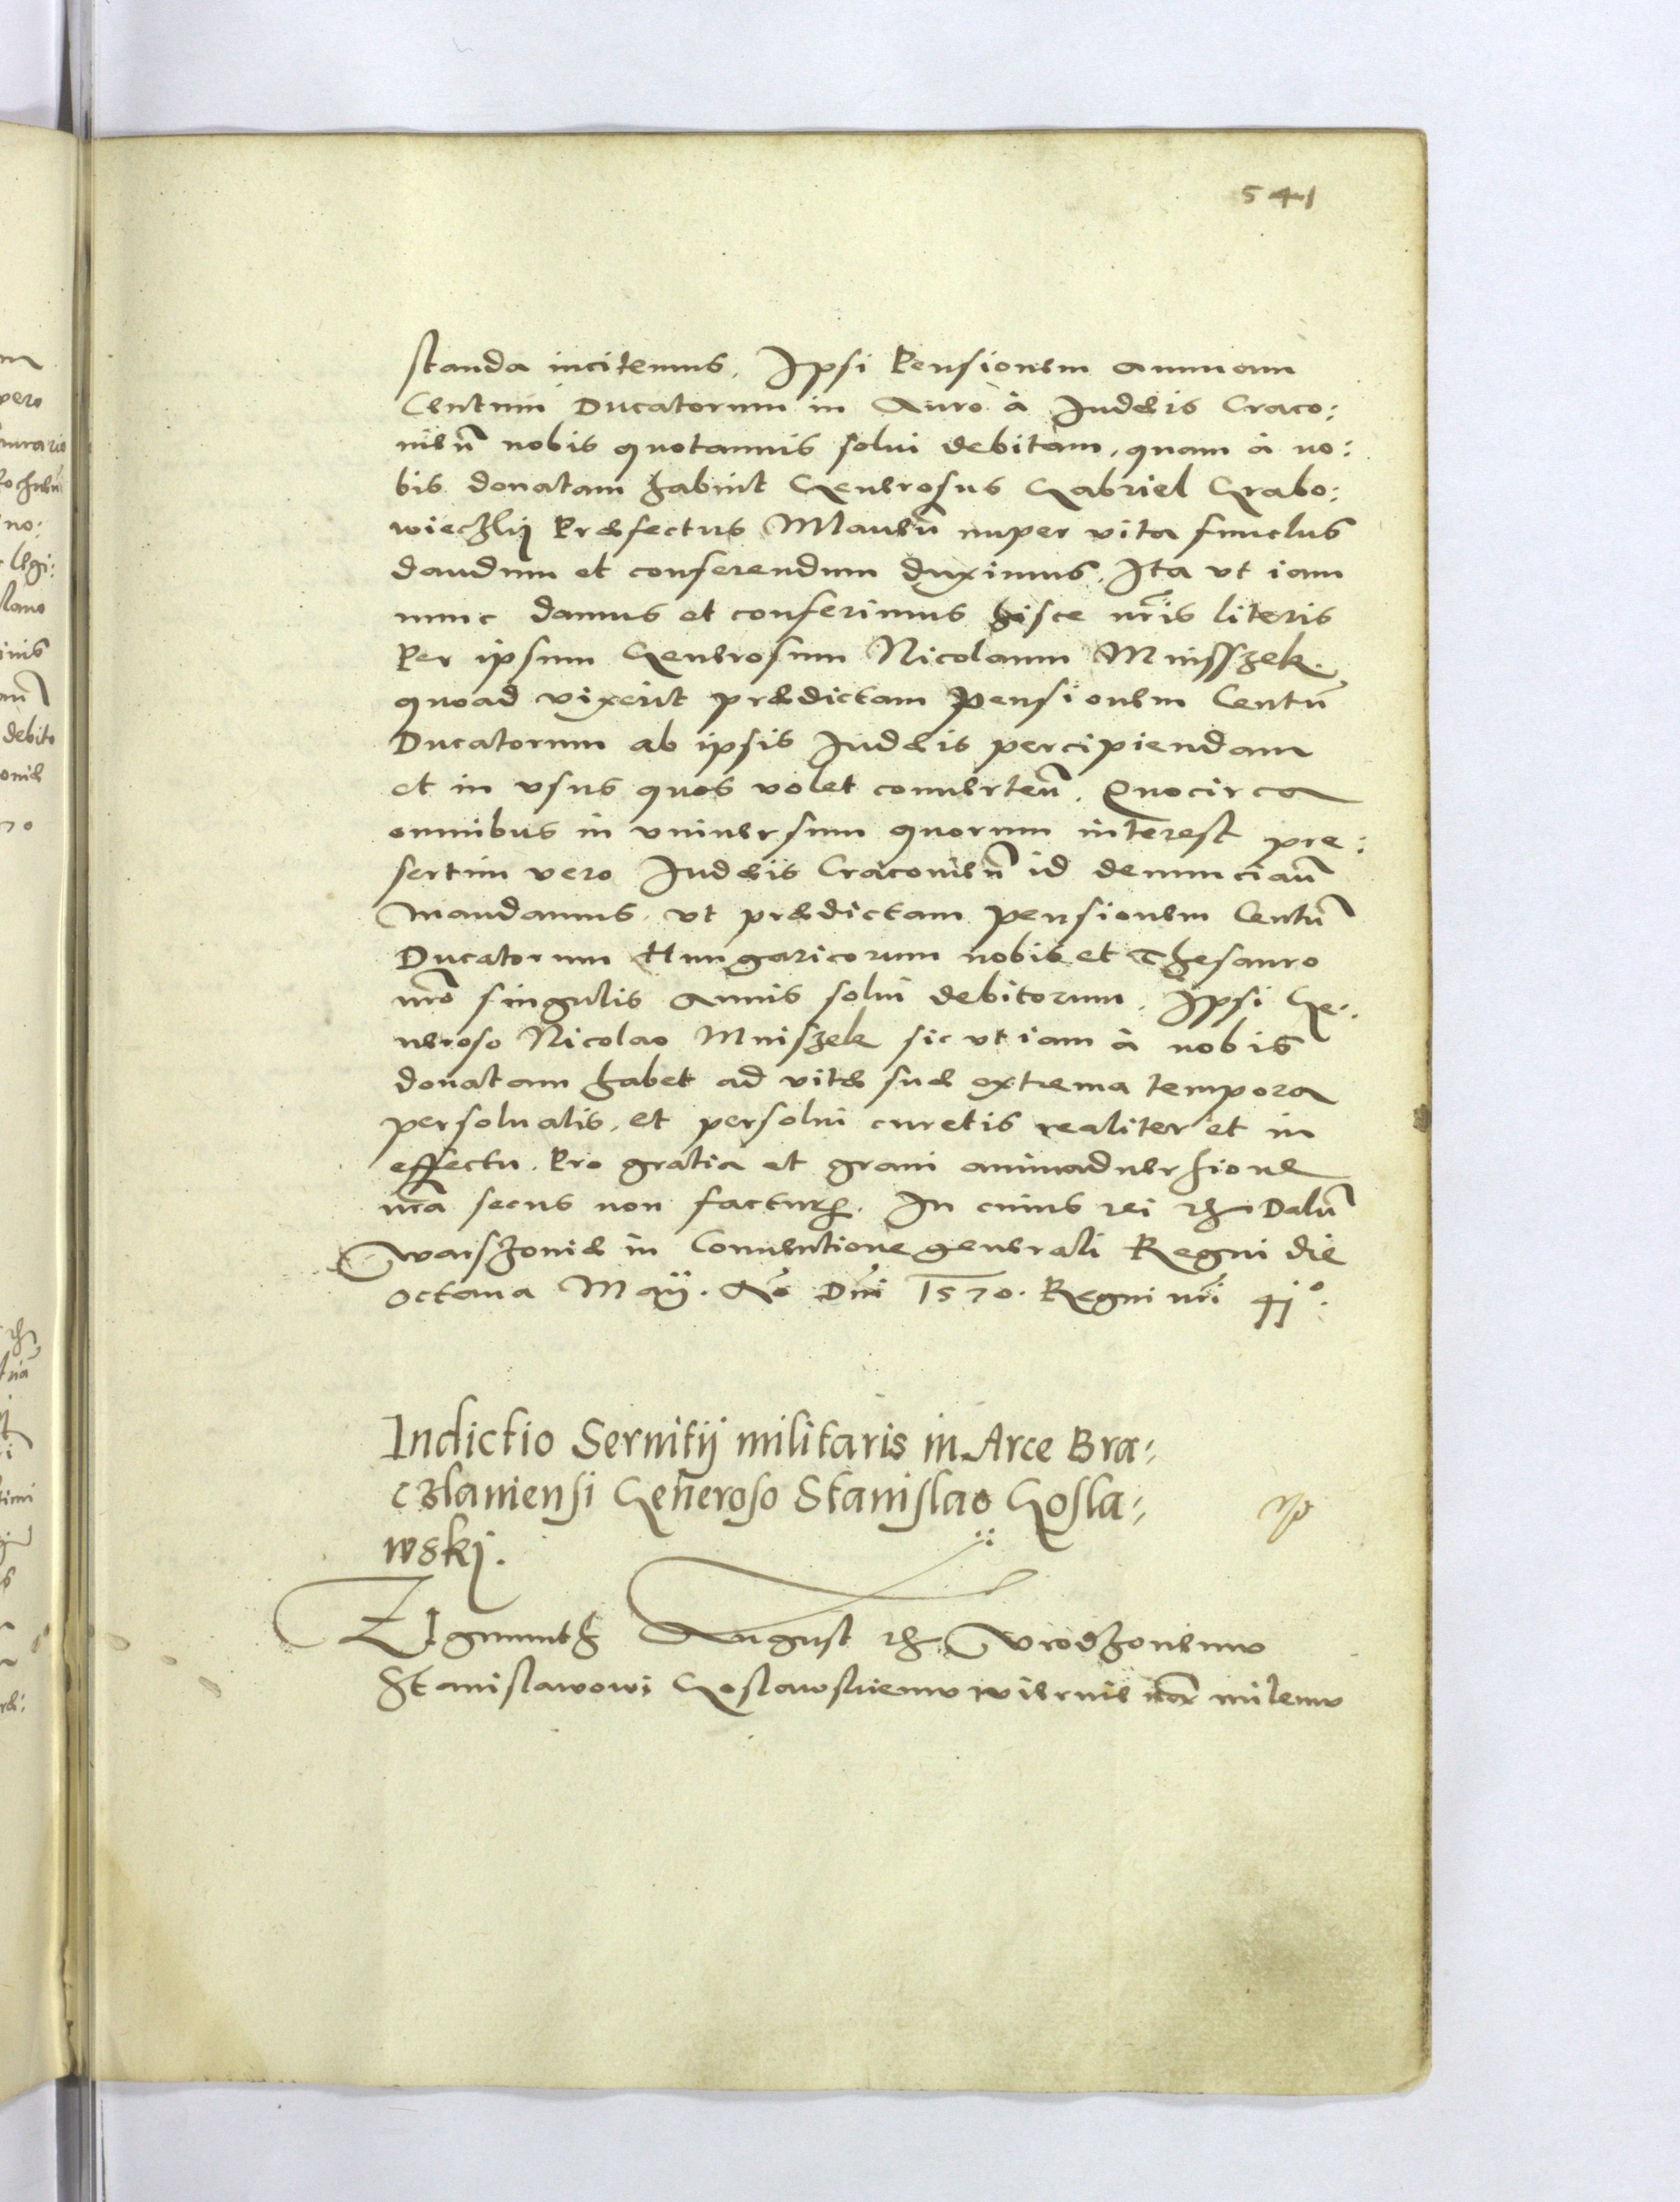 541
standa incitemus. Ipsi Pensionem annuam
Centum Ducatorum in Auro à Iudæis Craco:
nieñ nobis quotannis solui debitam, quam à no:
bis donatam habuit Generosus Gabriel Grabo:
wieczkij Præfectus Maueñ nuper vita functus
dandum et conferendum duximus. Ita vt iam
nunc damus et conferimus hisce nr̃is literis
Per ipsum Generosum Nicolaum Mnisszek.
quoad vixerit prædictam Pensionem Centũ
Ducatorum ab ipsis Iudæis percipiendam
et in vsus quos volet conuerteñ. Quocirca
omnibus in vniuersum quorum interest pre:
sertim vero Iudæis Cracouieñ id denunciañ
mandamus, vt prædictam pensionem Centũ
Ducatorum Hungaricorum nobis et Thesauro
nr̃o singulis Annis solui debitorum, Ipsi Ge:
neroso Nicolao Mniszek sic vt iam à nobis
donatam habet ad vitæ suæ extrema tempora
persoluatis, et persolui curetis realiter et in
effectu. Pro gratia et graui animaduersione
nr̃a secus non factur. In cuius rei etc. Datũ
Warszouiæ in Conuentione generali Regni die
octaua Maij. Aõ Dñi 1570. Regni nr̃i 41°.
Indictio Seruitij militaris in Arce Bra:
czlauiensi Generoso Stanislao Gosla:
wskj.
Zigmunth August etc. Wrodzonemu
Stanislawowi Goslawskiemu wiernie nam milemu